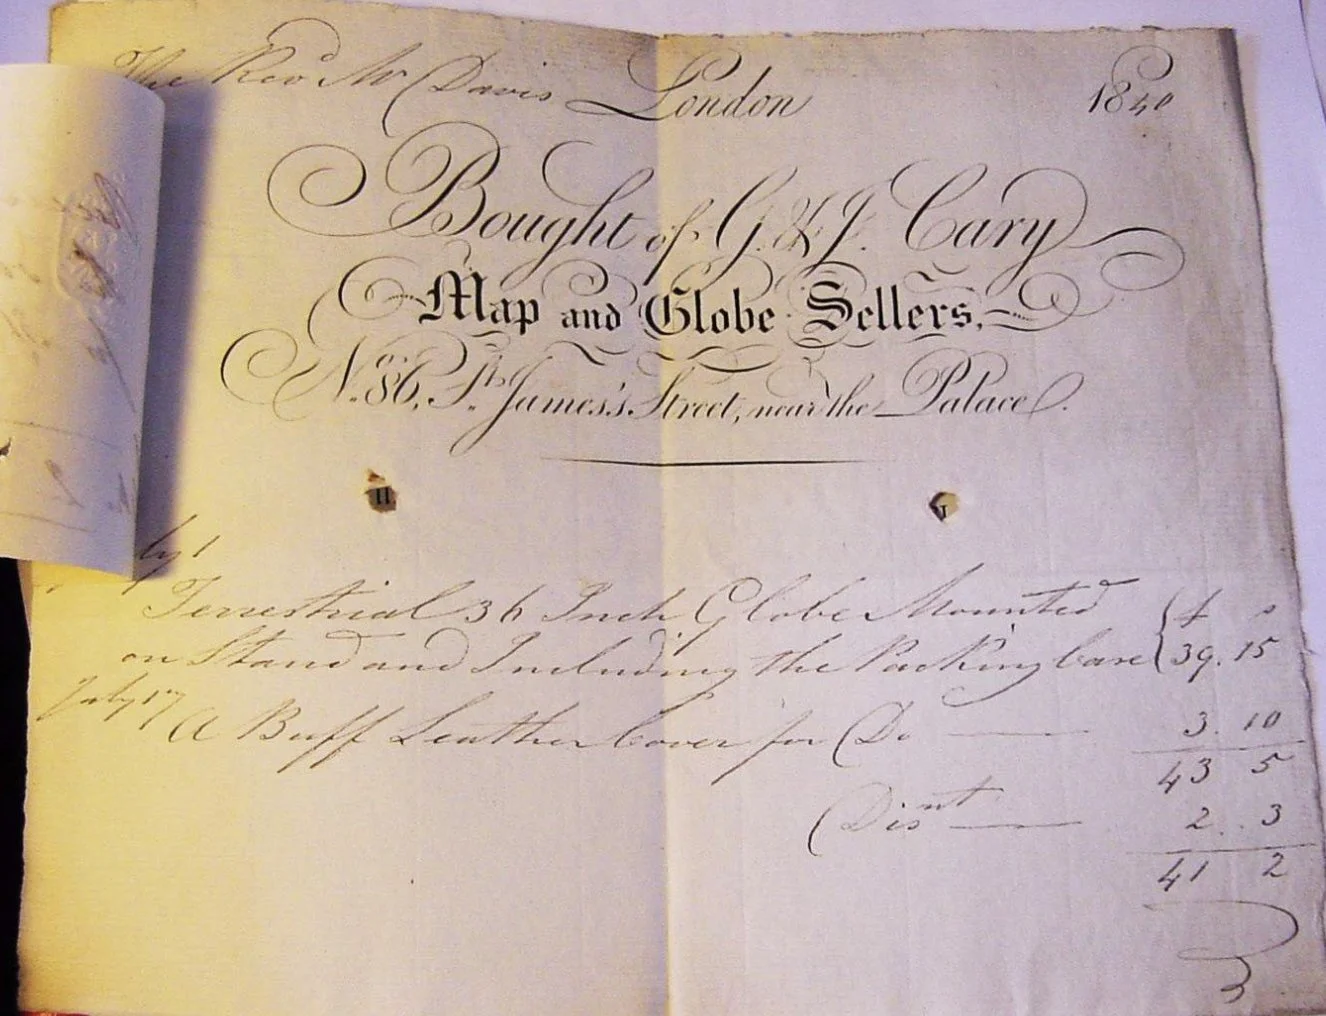 The Revd Mr Davis London 1840
Bought of G. & J. Cary
Map and Globe Sellers,
No. 86, St. James's Street, near the Palace.
ly 1
Terrestrial 36 Inch Globe Mounted £ s
on Stand and Including the Packing Case 39. 15
July 17 A Buff Leather Cover for Do 3. 10
43 5
Disnt 2. 3
41 2